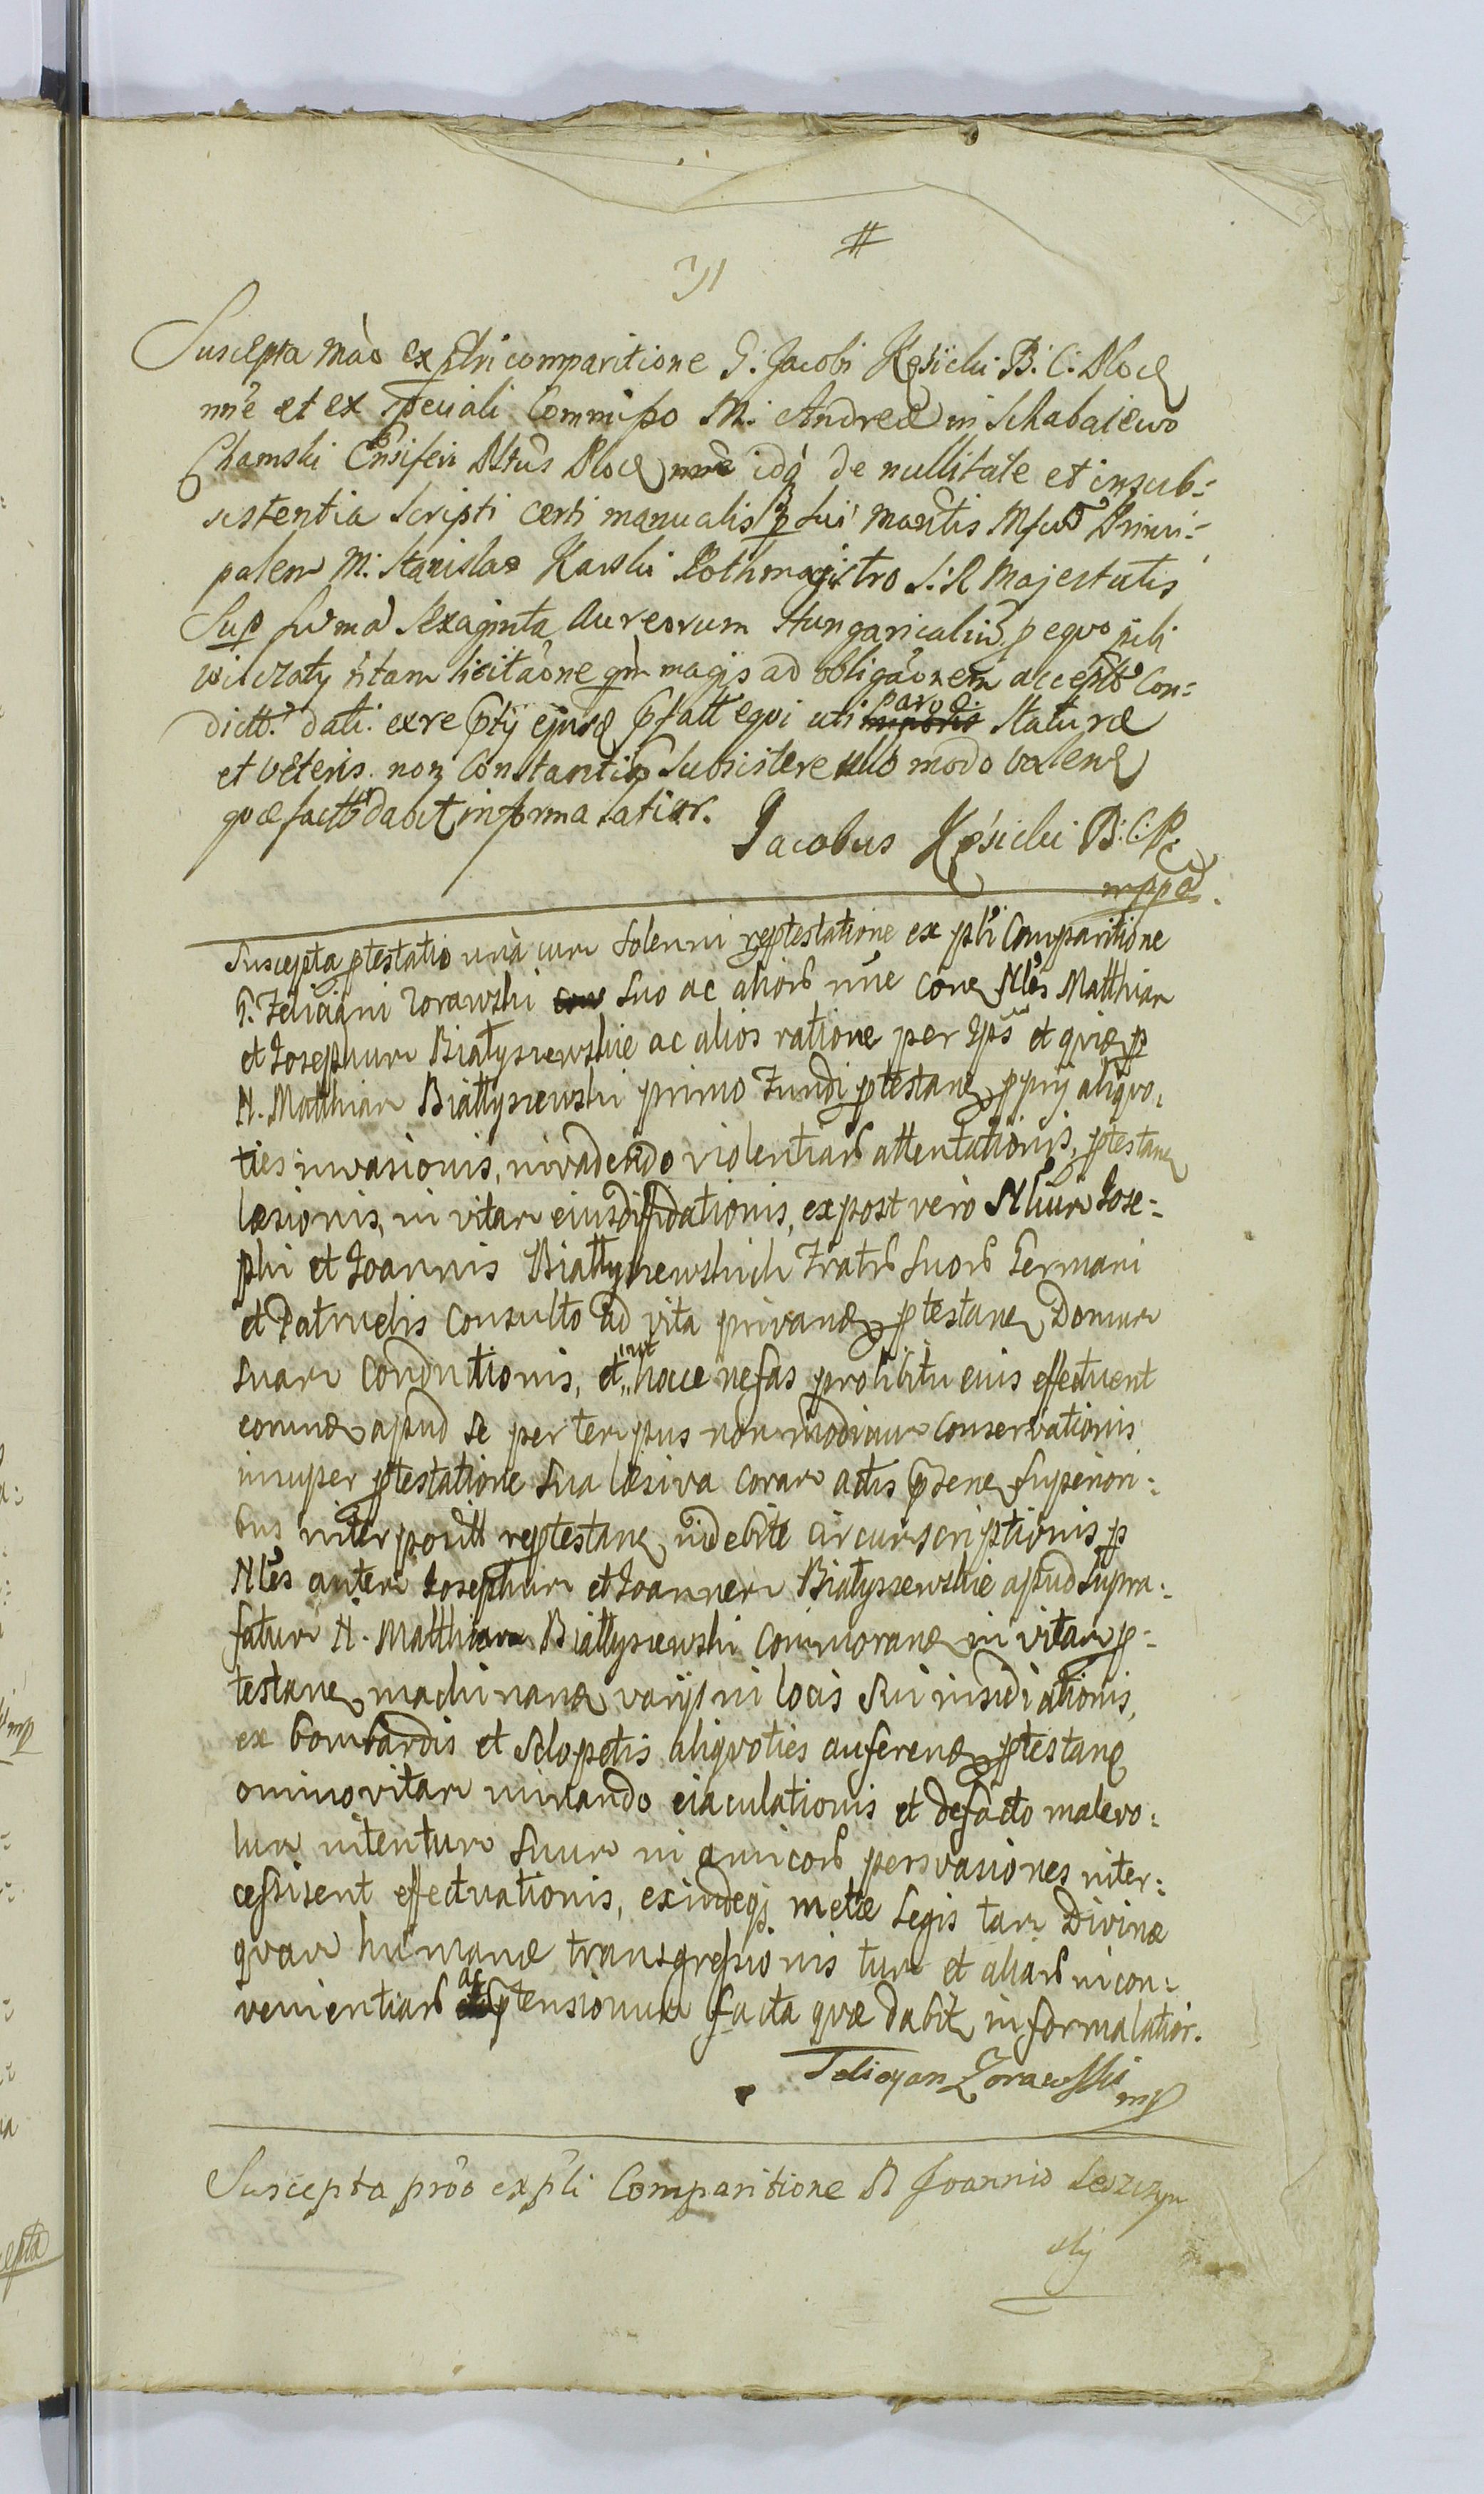 #
31
Suscepta mão ex płri comparitione G: Jacobi Kęsicki B: C: Ploc
nne et ex speciali Commisso M: Andreæ in Schabaiewo
Chamski Ensiferi Pltus Ploc nne idq de nullitate et insub-
sistentia Scripti certi manualis p sui mantis Mfcus Princi-
palem M: Stanislao Karski Rothmagistro S: R Majestatis
Sup summa Sexaginta Aureorum Hungaricaliu p equo
ntam licitaone qm magis ad obligaonem accepto Con-
dictt dati ex re ejusd pfatt equi uti parvæ Staturæ
et veteris non Constantis Subsistere ullo modo valen
quæ factt dabit informa latior.
Jacobus Kęsicki B: C: P:
mppa
Suscepta ptestatio unà cum solenni reptestatione ex pli Comparitione
G. Feliciani Zorawski suo ac alior nne con Nles Matthiam
et Josephum Białyszewskie ac alios ratione per Ips et quiæ p
N. Matthiam Białłyszewski primo Fundi ptestan pprij aliquo-
ties invasionis, invadendo violentiar attentationis, ptestan
læsionis, in vitam eiusd diffidationis, ex post vero Nlium Jose-
phi et Joannis Białłyszewskich Fratr suor Germani
et Patruelis consulto ad vita privand ptestan Domum
suam Conductionis, et int hoce nefas prohibitu eius effectuent
eorund apud se per tempus non modicum conservationis
insuper ptestatione sua læsiva coram actis psen superiori-
bus interpositt reptestan indebite circumscriptionis p
Nles autem Josephum et Joannem Białyszewskie apud supra-
fatum N. Matthiam Białłyszewski commorand in vitam p-
testan machinand varijs in locis sui insidiationis,
ex bombardis et sclopetis aliquoties auferend ptestan
omino vitam minando eiaculationis et defacto malevo-
lum intentum suum ni amicor persvasiones inter-
cessissent effectuationis, exindeq metæ Legis tam Divinæ
quam humanæ transgressionis tum et aliar incon-
venientiar ac ptensionum facta quæ dabit in forma latior.
Felicyan Zorawski
mp
Suscepta prõo ex pli Comparitione N Joannis